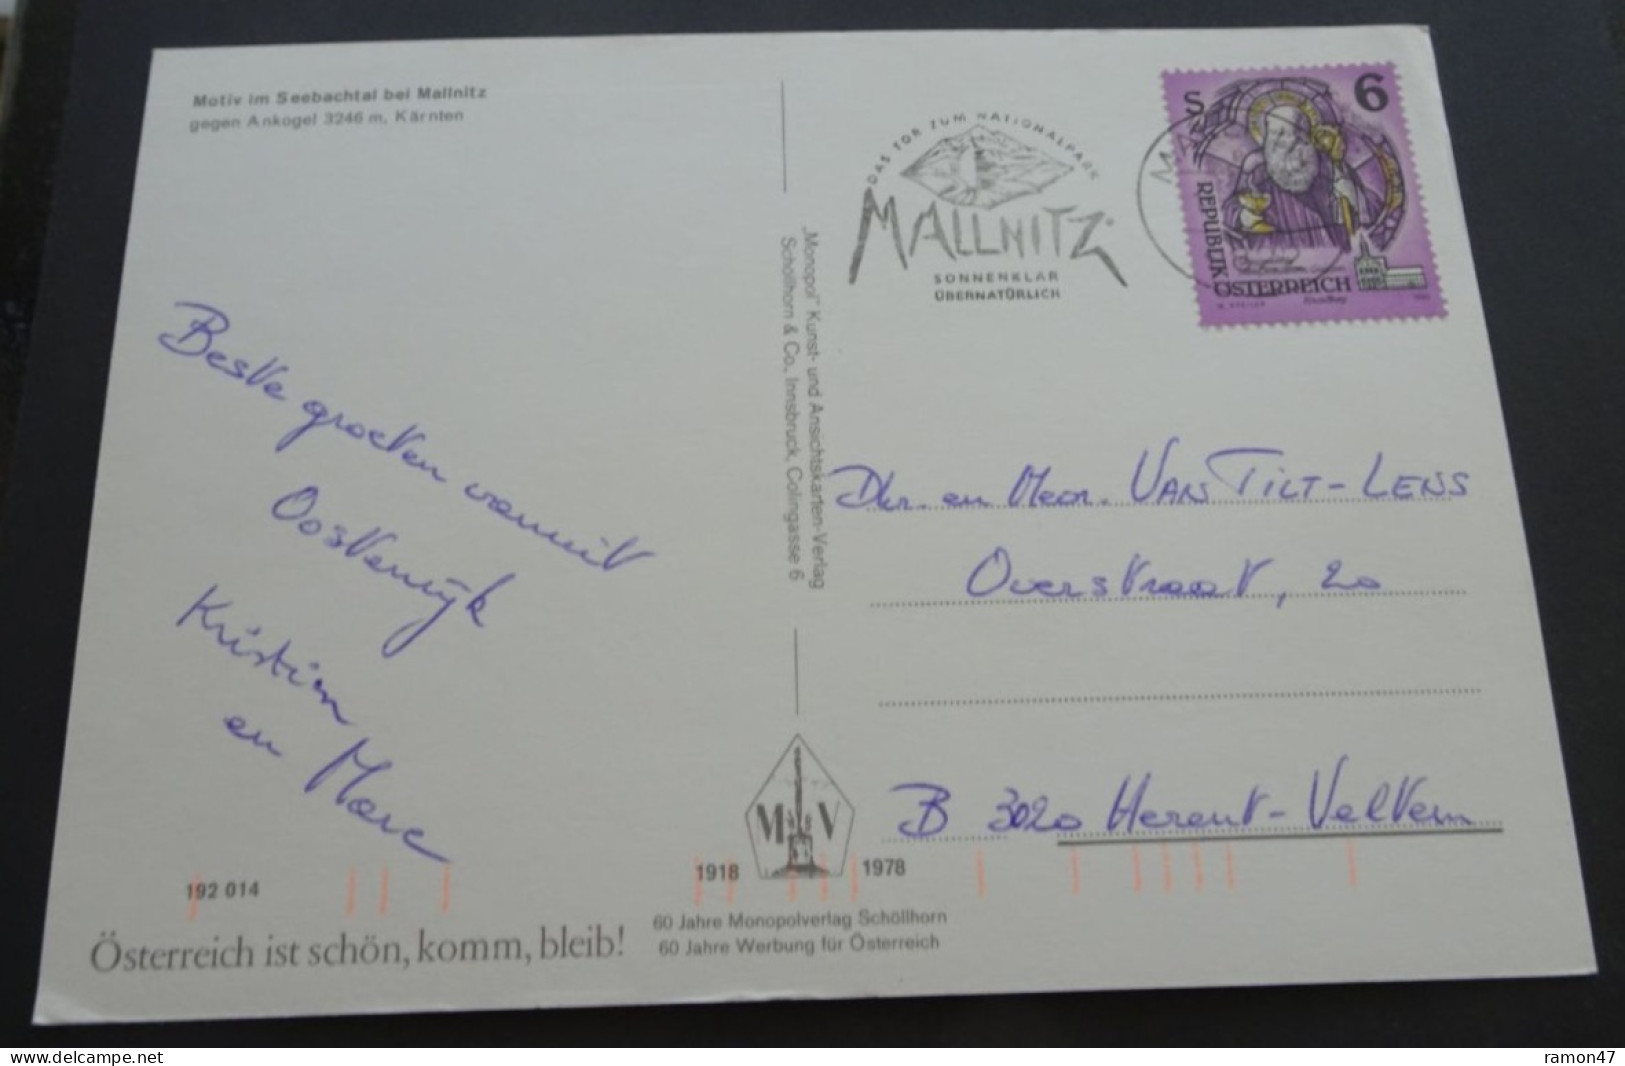 Motiv im Seebachtal bei Mallnitz
gegen Ankogel 3246 m, Kärnten
Beste groeten vanuit
Oostenrijk
Kristien
en Marc
192 014
Österreich ist schön, komm, bleib!
„Monopol" Kunst- und Ansichtskarten-Verlag
Schöllhorn & Co., Innsbruck, Colingasse 6
M V
1918 1978
60 Jahre Monopolverlag Schöllhorn
60 Jahre Werbung für Österreich
DAS TOR ZUM NATIONALPARK
MALLNITZ
SONNENKLAR
ÜBERNATÜRLICH
S 6
REPUBLIK
ÖSTERREICH
Dhr. en Mevr. VAN TILT-LENS
Overstraat, 20
B 3020 Herent-Veltem
www.delcampe.net
ramon47